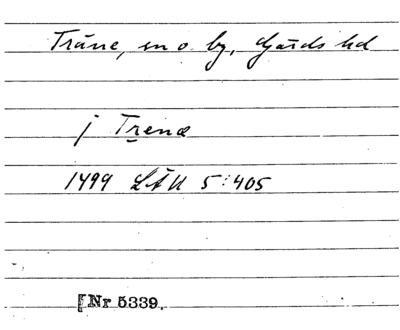 Träne, sn o. by, Gärds hd
j Trenæ
1499 LÄU 5:405
[Nr 5339.